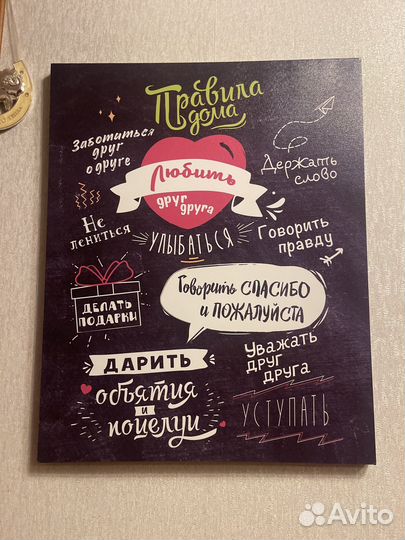 Правила
дома
Заботиться
друг
о друге
Любить
друг
друга
Держать
слово
Не
лениться
УЛЫБАТЬСЯ
Говорить
правду
ДЕЛАТЬ
ПОДАРКИ
Говорить СПАСИБО
и ПОЖАЛУЙСТА
ДАРИТЬ
объятия
и
поцелуи
Уважать
друг
друга
УСТУПАТЬ
Avito